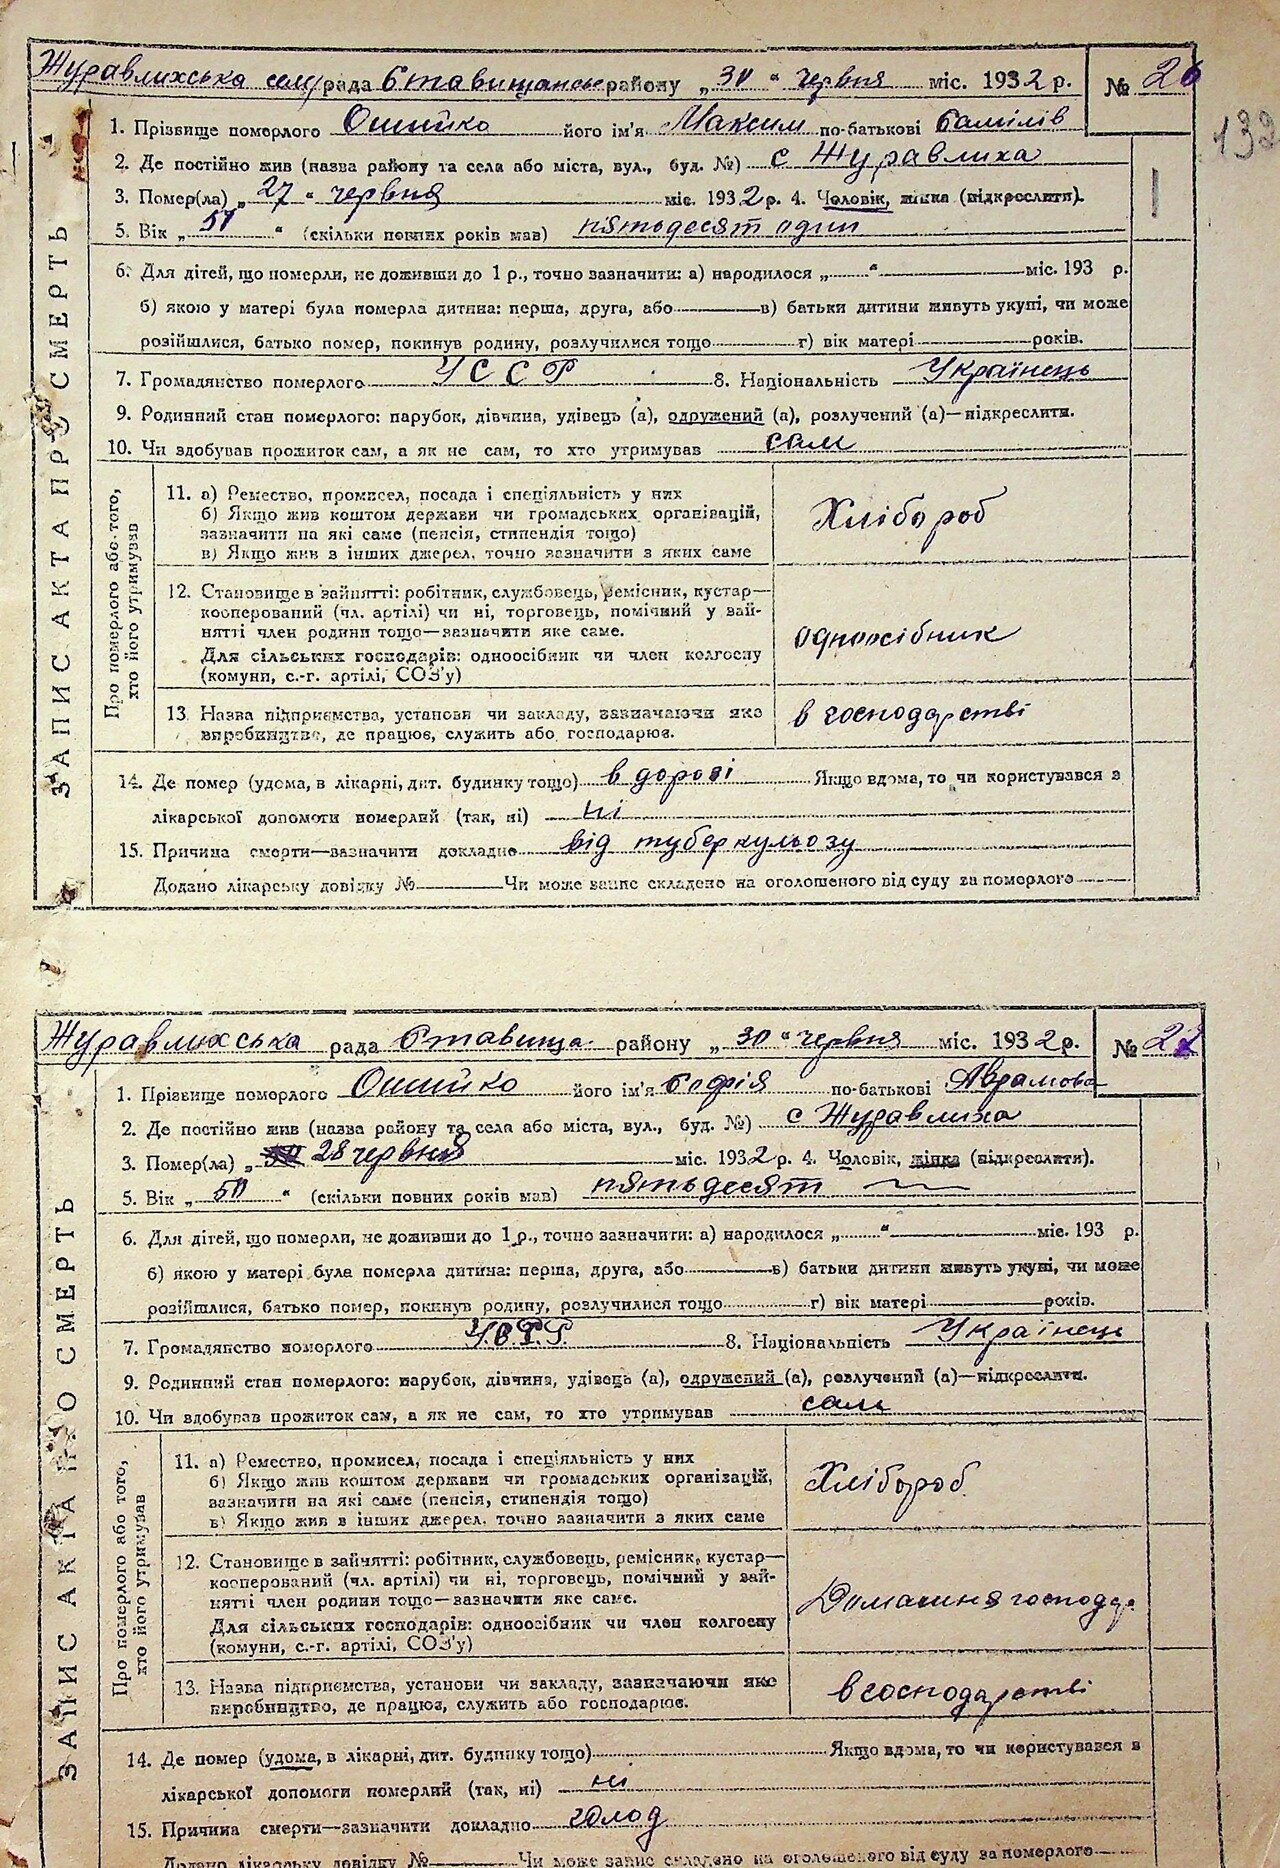 Журавлихська сел/рада Ставищансь району „30“ червня міс. 1932 р. № 26
132
ЗАПИС АКТА ПРО СМЕРТЬ
1. Прізвище померлого Ошийко його ім'я Максим по-батькові
2. Де постійно жив (назва району та села або міста, вул., буд. №) с Журавлиха
3. Помер(ла) „27“ червня міс. 1932 р. 4. Чоловік, жінка (підкреслити).
5. Вік „51“ (скільки повних років мав) пятьдесят один
6. Для дітей, що померли, не доживши до 1 р., точно зазначити: а) народилося „ “ міс. 193 р.
б) якою у матері була померла дитина: перша, друга, або в) батьки дитини живуть укупі, чи може
розійшлися, батько помер, покинув родину, розлучилися тощо г) вік матері років.
7. Громадянство померлого УССР 8. Національність Українець
9. Родинний стан померлого: парубок, дівчина, удівець (а), одружений (а), розлучений (а)—підкреслити.
10. Чи здобував прожиток сам, а як не сам, то хто утримував сам
Про померлого або того,
хто його утримував
11. а) Ремество, промисел, посада і спеціяльність у них
б) Якщо жив коштом держави чи громадських організацій,
зазначити на які саме (пенсія, стипендія тощо)
в) Якщо жив з інших джерел, точно зазначити з яких саме
Хлібороб
12. Становище в зайнятті: робітник, службовець, ремісник, кустар—
кооперований (чл. артілі) чи ні, торговець, помічний у зай-
нятті член родини тощо—зазначити яке саме.
Для сільських господарів: одноосібник чи член колгоспу
(комуни, с.-г. артілі, СОЗ'у)
одноосібник
13. Назва підприємства, установи чи закладу, зазначаючи яке
виробництво, де працює, служить або господарює.
в господарстві
14. Де помер (удома, в лікарні, дит. будинку тощо) в дорозі Якщо вдома, то чи користувався з
лікарської допомоги померлий (так, ні) ні
15. Причина смерти—зазначити докладно від туберкульозу
Додано лікарську довідку № Чи може запис складено на оголошеного від суду за померлого
Журавлихська рада Ставища району „30“ червня міс. 1932 р. № 27
ЗАПИС АКТА ПРО СМЕРТЬ
1. Прізвище померлого Ошийко його ім'я Софія по-батькові Аврамова
2. Де постійно жив (назва району та села або міста, вул., буд. №) с Журавлиха
3. Помер(ла) „ 28 червня міс. 1932 р. 4. Чоловік, жінка (підкреслити).
5. Вік „50“ (скільки повних років мав) пятьдесят
6. Для дітей, що померли, не доживши до 1 р., точно зазначити: а) народилося „ “ міс. 193 р.
б) якою у матері була померла дитина: перша, друга, або в) батьки дитини живуть укупі, чи може
розійшлися, батько помер, покинув родину, розлучилися тощо г) вік матері років.
7. Громадянство померлого У.С.Р.Р. 8. Національність Українець
9. Родинний стан померлого: парубок, дівчина, удівець (а), одружений (а), розлучений (а)—підкреслити.
10. Чи здобував прожиток сам, а як не сам, то хто утримував сам
Про померлого або того,
хто його утримував
11. а) Ремество, промисел, посада і спеціяльність у них
б) Якщо жив коштом держави чи громадських організацій,
зазначити на які саме (пенсія, стипендія тощо)
в) Якщо жив в інших джерел, точно зазначити з яких саме
Хлібороб
12. Становище в зайнятті: робітник, службовець, ремісник, кустар—
кооперований (чл. артілі) чи ні, торговець, помічний у зай-
нятті член родини тощо—зазначити яке саме.
Для сільських господарів: одноосібник чи член колгоспу
(комуни, с.-г. артілі, СОЗ'у)
Домашня господар
13. Назва підприємства, установи чи закладу, зазначаючи яке
виробництво, де працює, служить або господарює.
в господарстві
14. Де помер (удома, в лікарні, дит. будинку тощо) Якщо вдома, то чи користувався з
лікарської допомоги померлий (так, ні) ні
15. Причина смерти—зазначити докладно голод
Додано лікарську довідку № Чи може запис складено на оголошеного від суду за померлого